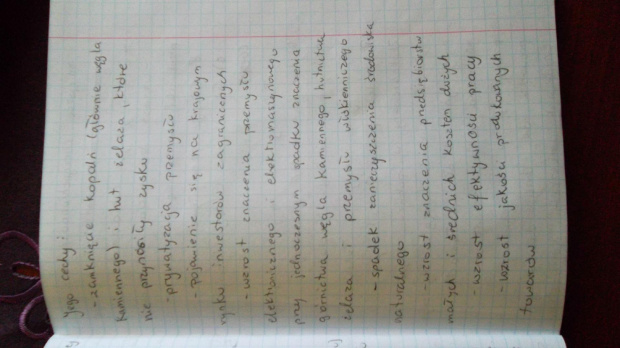 Jego cechy:
- zamknięcie kopalń (głównie węgla
kamiennego) i hut żelaza, które
nie przynosiły zysku
- prywatyzacja przemysłu
- pojawienie się na krajowym
rynku inwestorów zagranicznych
- wzrost znaczenia przemysłu
elektronicznego i elektromaszynowego
przy jednoczesnym spadku znaczenia
górnictwa węgla kamiennego, hutnictwa
żelaza i przemysłu włókienniczego
- spadek zanieczyszczenia środowiska
naturalnego
- wzrost znaczenia przedsiębiorstw
małych i średnich kosztem dużych
- wzrost efektywności pracy
- wzrost jakości produkowanych
towarów